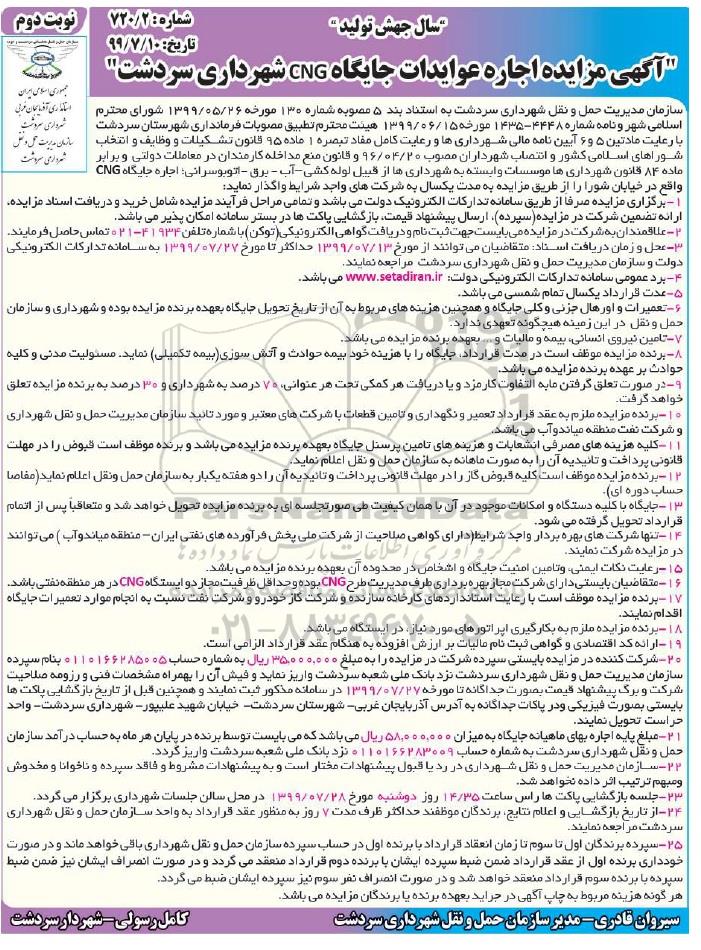 نوبت دوم
"سال جهش تولید"
شماره: ۷۲۰/۲
تاریخ: ۹۹/۷/۱۰
"آگهی مزایده اجاره عوایدات جایگاه CNG شهرداری سردشت"
جمهوری اسلامی ایران
استانداری آذربایجان غربی
شهرداری سردشت
سازمان مدیریت حمل و نقل
شهرداری سردشت
سازمان مدیریت حمل و نقل شهرداری سردشت به استناد بند ۵ مصوبه شماره ۱۳۰ مورخه ۱۳۹۹/۰۵/۲۶ شورای محترم
اسلامی شهر و نامه شماره ۴۴۴۸-۱۴۳۵ مورخه ۱۳۹۹/۰۶/۱۵ هیئت محترم تطبیق مصوبات فرمانداری شهرستان سردشت
با رعایت مادتین ۵ و۶ آیین نامه مالی شهرداری ها و رعایت کامل مفاد تبصره ۱ ماده ۹۵ قانون تشکیلات و وظایف و انتخاب
شوراهای اسلامی کشور و انتصاب شهرداران مصوب ۹۶/۰۴/۲۰ و قانون منع مداخله کارمندان در معاملات دولتی و برابر
ماده ۸۴ قانون شهرداری ها موسسات وابسته به شهرداری ها از قبیل لوله کشی-آب - برق -اتوبوسرانی؛ اجاره جایگاه CNG
واقع در خیابان شورا را از طریق مزایده به مدت یکسال به شرکت های واجد شرایط واگذار نماید:
۱-برگزاری مزایده صرفا از طریق سامانه تدارکات الکترونیک دولت می باشد و تمامی مراحل فرآیند مزایده شامل خرید و دریافت اسناد مزایده،
ارائه تضمین شرکت در مزایده(سپرده)، ارسال پیشنهاد قیمت، بازگشایی پاکت ها در بستر سامانه امکان پذیر می باشد.
۲-علاقمندان به شرکت در مزایده می بایست جهت ثبت نام و دریافت گواهی الکترونیکی(توکن) با شماره تلفن ۴۱۹۳۴-۰۲۱ تماس حاصل فرمایند.
۳-محل و زمان دریافت اسناد: متقاضیان می توانند از مورخ ۱۳۹۹/۰۷/۱۳ حداکثر تا مورخ ۱۳۹۹/۰۷/۲۷ به سامانه تدارکات الکترونیکی
دولت و سازمان مدیریت حمل و نقل شهرداری سردشت مراجعه نمایند.
۴-برد عمومی سامانه تدارکات الکترونیکی دولت: www.setadiran.ir می باشد.
۵-مدت قرارداد یکسال تمام شمسی می باشد.
۶-تعمیرات و اورهال جزئی و کلی جایگاه و همچنین هزینه های مربوط به آن از تاریخ تحویل جایگاه بعهده برنده مزایده بوده و شهرداری و سازمان
حمل و نقل در این زمینه هیچگونه تعهدی ندارد.
۷-تامین نیروی انسانی، بیمه و مالیات و ... بعهده برنده مزایده می باشد.
۸-برنده مزایده موظف است در مدت قرارداد، جایگاه را با هزینه خود بیمه حوادث و آتش سوزی(بیمه تکمیلی) نماید. مسئولیت مدنی و کلیه
حوادث بر عهده برنده مزایده می باشد.
۹-در صورت تعلق گرفتن مابه التفاوت کارمزد و یا دریافت هر کمکی تحت هر عنوانی، ۷۰ درصد به شهرداری و ۳۰ درصد به برنده مزایده تعلق
خواهد گرفت.
۱۰-برنده مزایده ملزم به عقد قرارداد تعمیر و نگهداری و تامین قطعات با شرکت های معتبر و مورد تائید سازمان مدیریت حمل و نقل شهرداری
و شرکت نفت منطقه میاندوآب می باشد.
۱۱-کلیه هزینه های مصرفی انشعابات و هزینه های تامین پرسنل جایگاه بعهده برنده مزایده می باشد و برنده موظف است قبوض را در مهلت
قانونی پرداخت و تائیدیه آن را به صورت ماهانه به سازمان حمل و نقل اعلام نماید.
۱۲-برنده مزایده موظف است کلیه قبوض گاز را در مهلت قانونی پرداخت و تائیدیه آن را دو هفته یکبار به سازمان حمل ونقل اعلام نماید(مفاصا
حساب دوره ای).
۱۳-جایگاه با کلیه دستگاه و امکانات موجود در آن با همان کیفیت طی صورتجلسه ای به برنده مزایده تحویل خواهد شد و متعاقباً پس از اتمام
قرارداد تحویل گرفته می شود.
۱۴-تنها شرکت های بهره بردار واجد شرایط(دارای گواهی صلاحیت از شرکت ملی پخش فرآورده های نفتی ایران- منطقه میاندوآب ) می توانند
در مزایده شرکت نمایند.
۱۵-رعایت نکات ایمنی، وتامین امنیت جایگاه و اشخاص در محدوده آن بعهده برنده مزایده می باشد.
۱۶-متقاضیان بایستی دارای شرکت مجاز بهره برداری طرف مدیریت طرح CNG بوده و حداقل ظرفیت مجاز دو ایستگاه CNG در هر منطقه نفتی باشد.
۱۷-برنده مزایده موظف است با رعایت استانداردهای کارخانه سازنده و شرکت گاز خودرو و شرکت نفت نسبت به انجام موارد تعمیرات جایگاه
اقدام نمایند.
۱۸-برنده مزایده ملزم به بکارگیری اپراتورهای مورد نیاز، در ایستگاه می باشد.
۱۹-ارائه کد اقتصادی و گواهی ثبت نام مالیات بر ارزش افزوده به هنگام عقد قرارداد الزامی است.
۲۰-شرکت کننده در مزایده بایستی سپرده شرکت در مزایده را به مبلغ ۳۵,۰۰۰,۰۰۰ ریال به شماره حساب ۰۱۱۰۱۶۶۲۸۵۰۰۵ بنام سپرده
سازمان مدیریت حمل و نقل شهرداری سردشت نزد بانک ملی شعبه سردشت واریز نماید و فیش آن را بهمراه مشخصات فنی و رزومه صلاحیت
شرکت و برگ پیشنهاد قیمت بصورت جداگانه تا مورخه ۱۳۹۹/۰۷/۲۷ در سامانه مذکور ثبت نمایند و همچنین قبل از تاریخ بازگشایی پاکت ها
بایستی بصورت فیزیکی ودر پاکات جداگانه به آدرس آذربایجان غربی- شهرستان سردشت- خیابان شهید علیپور- شهرداری سردشت- واحد
حراست تحویل نمایند.
۲۱-مبلغ پایه اجاره بهای ماهیانه جایگاه به میزان ۵۸,۰۰۰,۰۰۰ ریال می باشد که می بایست توسط برنده در پایان هر ماه به حساب درآمد سازمان
حمل و نقل شهرداری سردشت به شماره حساب ۰۱۱۰۱۶۶۲۸۳۰۰۹ نزد بانک ملی شعبه سردشت واریز گردد.
۲۲-سازمان مدیریت حمل و نقل شهرداری در رد یا قبول پیشنهادات مختار است و به پیشنهادات مشروط و فاقد سپرده و ناخوانا و مخدوش
ومبهم ترتیب اثر داده نخواهد شد.
۲۳-جلسه بازگشایی پاکت ها راس ساعت ۱۴/۳۵ روز دوشنبه مورخ ۱۳۹۹/۰۷/۲۸ در محل سالن جلسات شهرداری برگزار می گردد.
۲۴-از تاریخ بازگشایی و اعلام نتایج، برندگان موظفند حداکثر ظرف مدت ۷ روز به منظور عقد قرارداد به واحد سازمان حمل و نقل شهرداری
سردشت مراجعه نمایند.
۲۵-سپرده برندگان اول تا سوم تا زمان انعقاد قرارداد با برنده اول در حساب سپرده سازمان حمل و نقل شهرداری باقی خواهد ماند و در صورت
خودداری برنده اول از عقد قرارداد ضمن ضبط سپرده ایشان با برنده دوم قرارداد منعقد می گردد و در صورت انصراف ایشان نیز ضمن ضبط
سپرده با برنده سوم قرارداد منعقد خواهد شد و در صورت انصراف نفر سوم نیز سپرده ایشان ضبط می گردد.
هر گونه هزینه مربوط به چاپ آگهی در جراید بعهده برنده یا برندگان مزایده می باشد.
سیروان قادری- مدیر سازمان حمل و نقل شهرداری سردشت
کامل رسولی-شهردار سردشت
ParsNamadData
۰۲۱-۸۸۳۴۹۶۷۰-۵